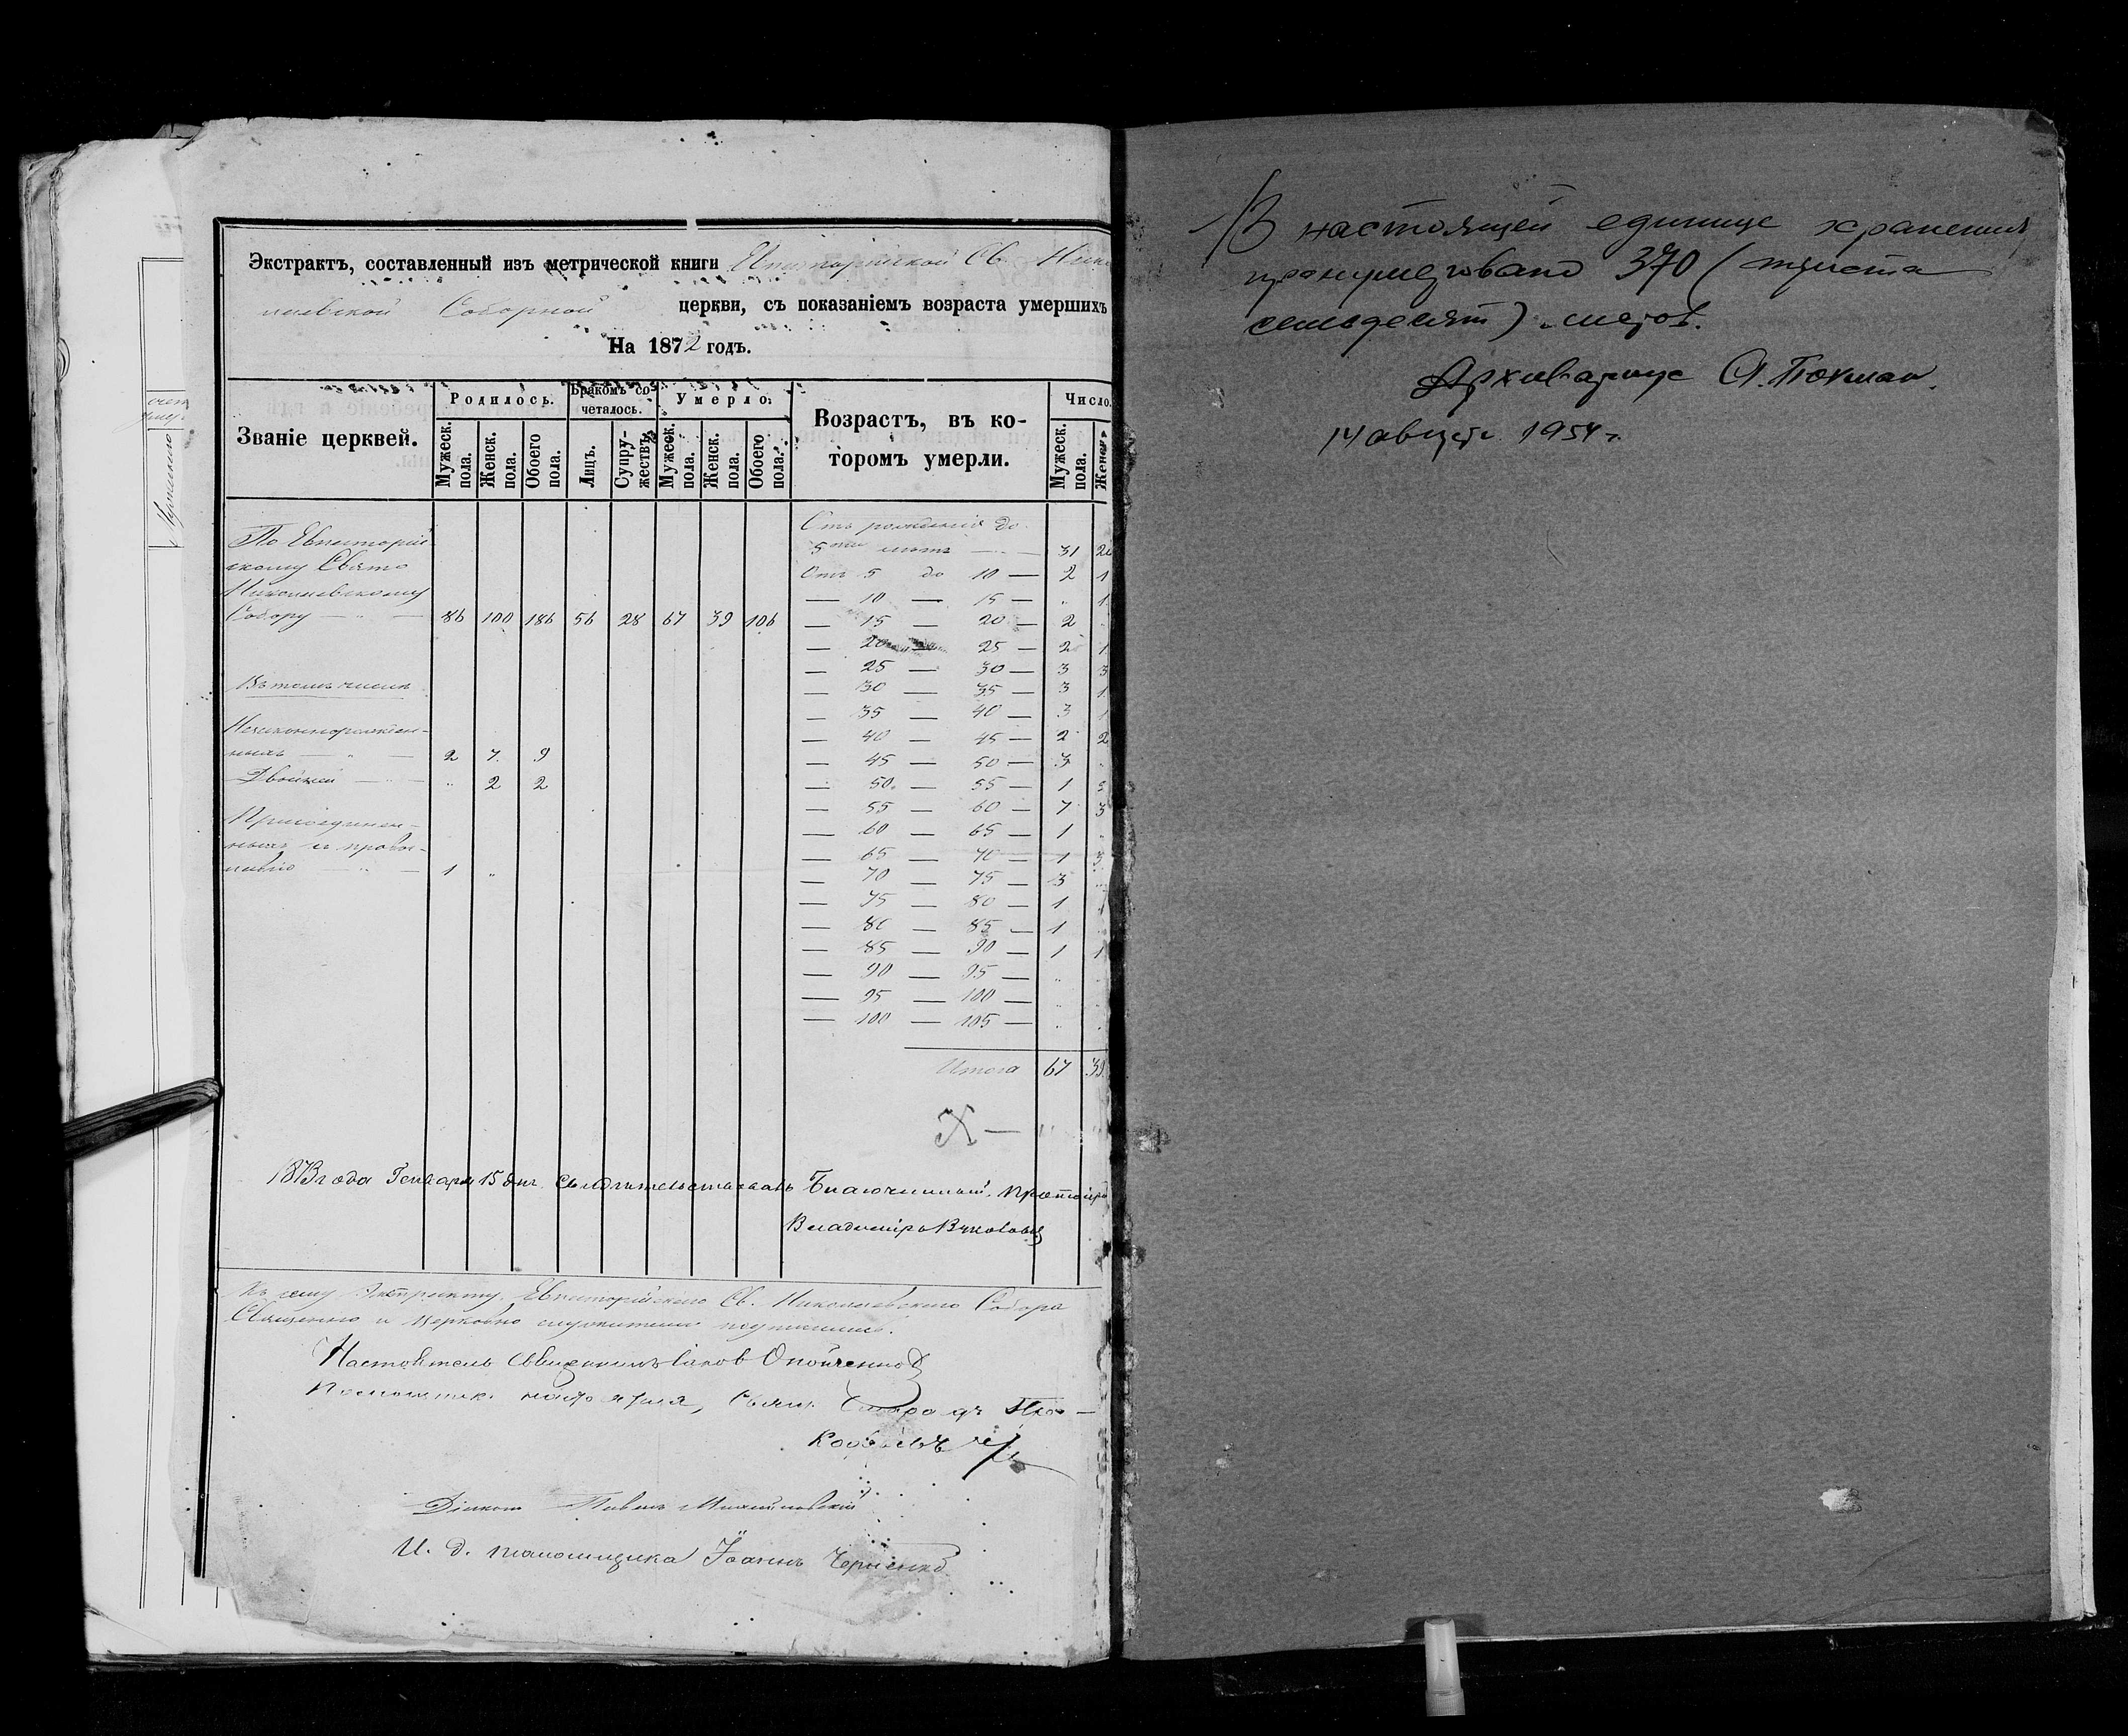 Экстрактъ, составленный изъ метрической книги Евпаторійской Св. Нико
лаевской Соборной церкви, съ показаніемъ возраста умершихъ
На 1872 годъ.
Званіе церквей. Родилось. Бракомъ со- Умерло. Возрастъ, въ ко- Число.
четалось. торомъ умерли.
Мужеск. пола. Женск. пола. Обоего пола. Лицъ. Супру-жествъ. Мужеск. пола. Женск. пола. Обоего пола. Мужеск. пола. Женск
Отъ рожденія до
По Евпаторій- 5ти лѣтъ — 31
скому Свято Отъ 5 до 10 — 2 1
Николаевскому — 10 — 15 — " 1
Собору — " — 86 100 186 56 28 67 39 106 — 15 — 20 — 2
— 20 — 25 — 2 1
— 25 — 30 — 3 3
Въ томъ числѣ — 30 — 35 — 3 1
— 35 — 40 — 3 1
Незаконнорожден- — 40 — 45 — 2 2
ныхъ — " — 2 7 9 — 45 — 50 — 3 "
Двойней — " 2 2 — 50 — 55 — 1
— 55 — 60 — 7 3
Присоединен- — 60 — 65 — 1 "
ныхъ къ право- — 65 — 70 — 1 3
славію — " — 1 " — 70 — 75 — 3 "
— 75 — 80 — 1
— 80 — 85 — 1
— 85 — 90 — 1 1
— 90 — 95 — "
— 95 — 100 — "
— 100 — 105 — "
Итого 67 39
X —
1873 года Генваря 15 дня свидѣтельствовалъ Благочинный, Протоіере
Владиміръ
Къ сему Экстракту, Евпаторійскаго Св. Николаевскаго Собора
Священно и Церковно служители подписались.
Настоятель Священникъ Іаковъ
Помощник. настоятеля, Свящ.
Діаконъ Павелъ Михайловскій
И. д. псаломщика Іоаннъ Черненко
В настоящей единице хранения
пронумеровано 370 (триста
семьдесят) листов.
Архивариус
14 августа 1954 г.